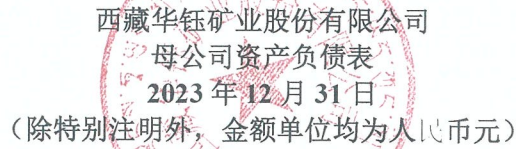 西藏华钰矿业股份有限公司
母公司资产负债表
2023 年 12 月 31 日
（除特别注明外，金额单位均为人民币元）